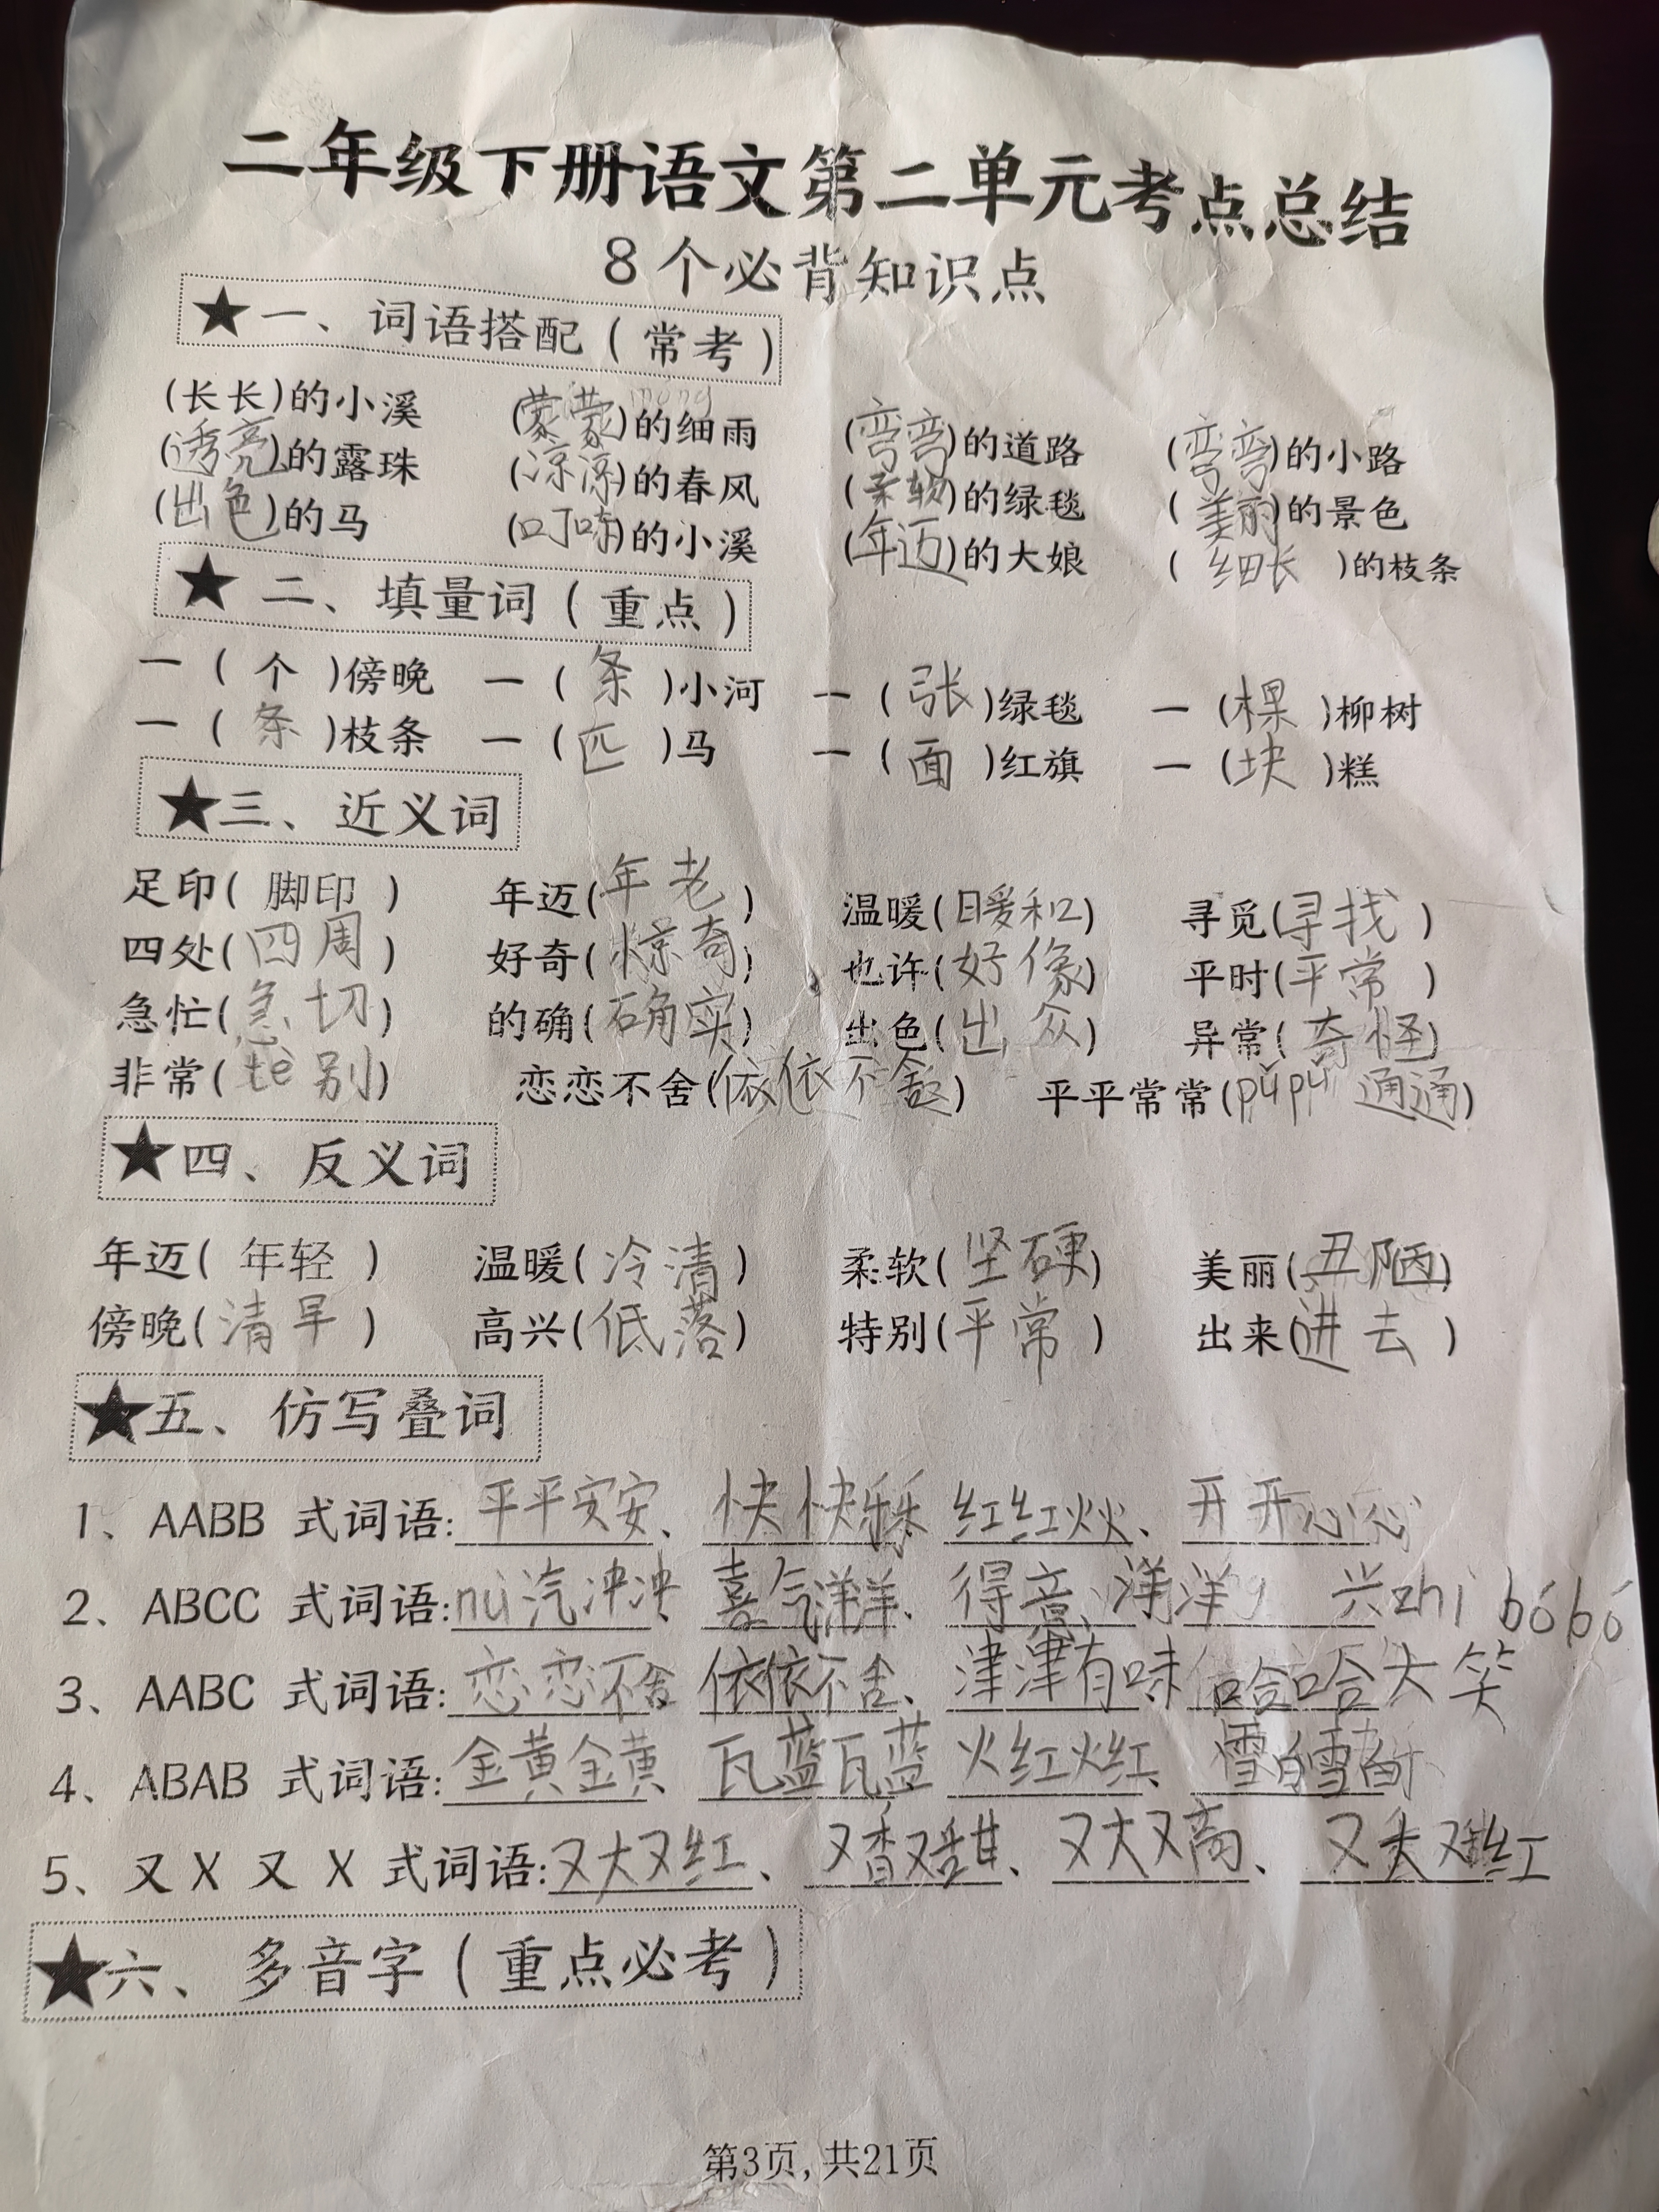 二年级下册语文第二单元考点总结
8个必背知识点
★一、词语搭配(常考)
(长长)的小溪 (蒙蒙)的细雨 (弯弯)的道路 (弯弯)的小路
(透亮)的露珠 (凉凉)的春风 (柔软)的绿毯 (美丽)的景色
(出色)的马 (叮咚)的小溪 (年迈)的大娘 (细长)的枝条
★二、填量词(重点)
一(个)傍晚 一(条)小河 一(张)绿毯 一(棵)柳树
一(条)枝条 一(匹)马 一(面)红旗 一(块)糕
★三、近义词
足印(脚印) 年迈(年老) 温暖(暖和) 寻觅(寻找)
四处(四周) 好奇(惊奇) 也许(好像) 平时(平常)
急忙(急切) 的确(确实) 出色(出众) 异常(奇怪)
非常(te别) 恋恋不舍(依依不舍) 平平常常(pǔpǔ通通)
★四、反义词
年迈(年轻) 温暖(冷清) 柔软(坚硬) 美丽(丑陋)
傍晚(清早) 高兴(低落) 特别(平常) 出来(进去)
★五、仿写叠词
1、AABB 式词语:平平安安、快快乐乐 红红火火、开开心心
2、ABCC 式词语:nù汽冲冲 喜气洋洋、得意洋洋 兴zhì bóbó
3、AABC 式词语:恋恋不舍 依依不舍、津津有味 哈哈大笑
4、ABAB 式词语:金黄金黄 瓦蓝瓦蓝 火红火红、雪白雪白
5、又 X 又 X 式词语:又大又红、又香又甜、又大又高、又大又红
★六、多音字(重点必考)
第3页,共21页